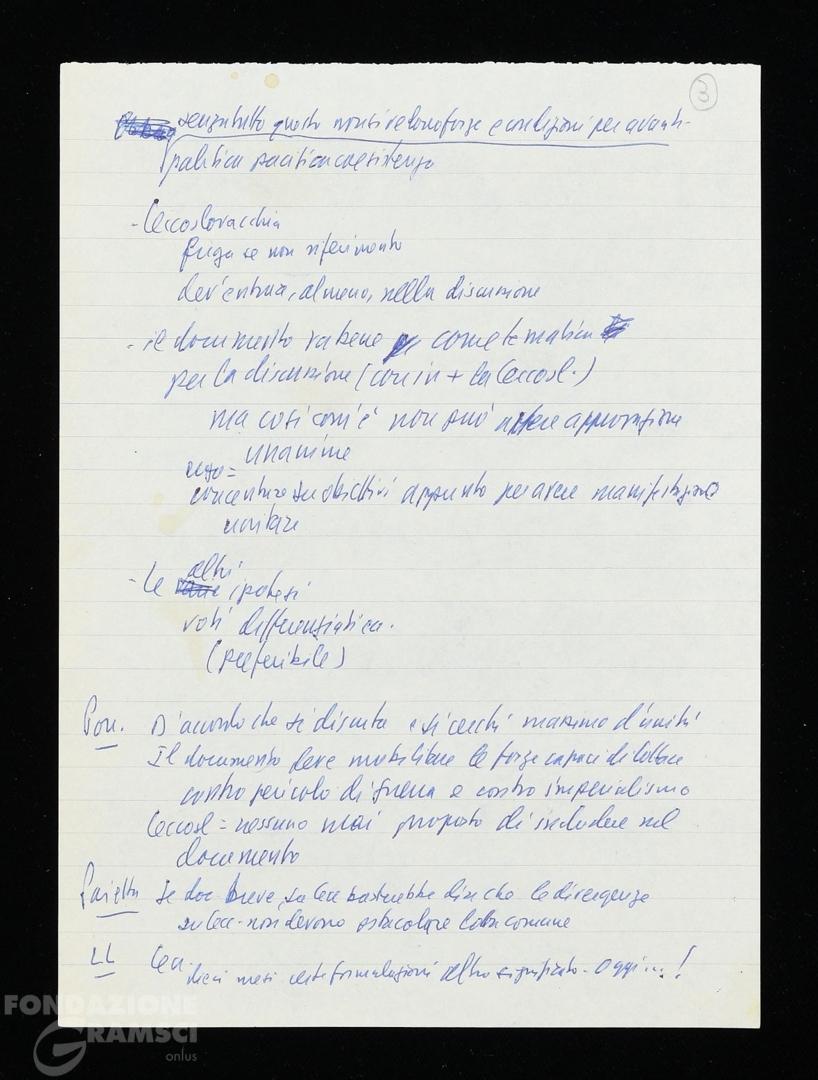 a
senza tutto questo non si vedono forze e condizioni per avanti
politica pacifica coesistenza
- Cecoslovacchia
se non riferimento
dev'entrare, almeno, nella discussione
- il documento va bene come tematica
per la discussione (con in + la Cecosl.)
ma così com'è non può avere approvazione
unanime
concentrare su obiettivi appunto per avere manifestazione
unitaria
- Le altri ipotesi
voti differenziati
(preferibile)
Pon. D'accordo che si discuta e si cerchi massimo d'unità
Il documento deve mobilitare le forze capaci di lottare
contro pericolo di guerra e contro imperialismo
Cecosl = nessuno mai proposto di includere nel
documento
Pajetta Se doc breve, su Cec basterebbe dire che le divergenze
su Cec. non devono ostacolare lotta comune
LL Cec.
dieci mesi certe formulazioni altro significato - Oggi...!
FONDAZIONE
GRAMSCI
onlus